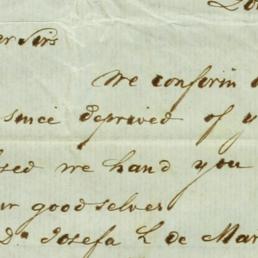 Sirs
We confirm
since deprived of
we hand you
good selves
Da Josefa L de Mar